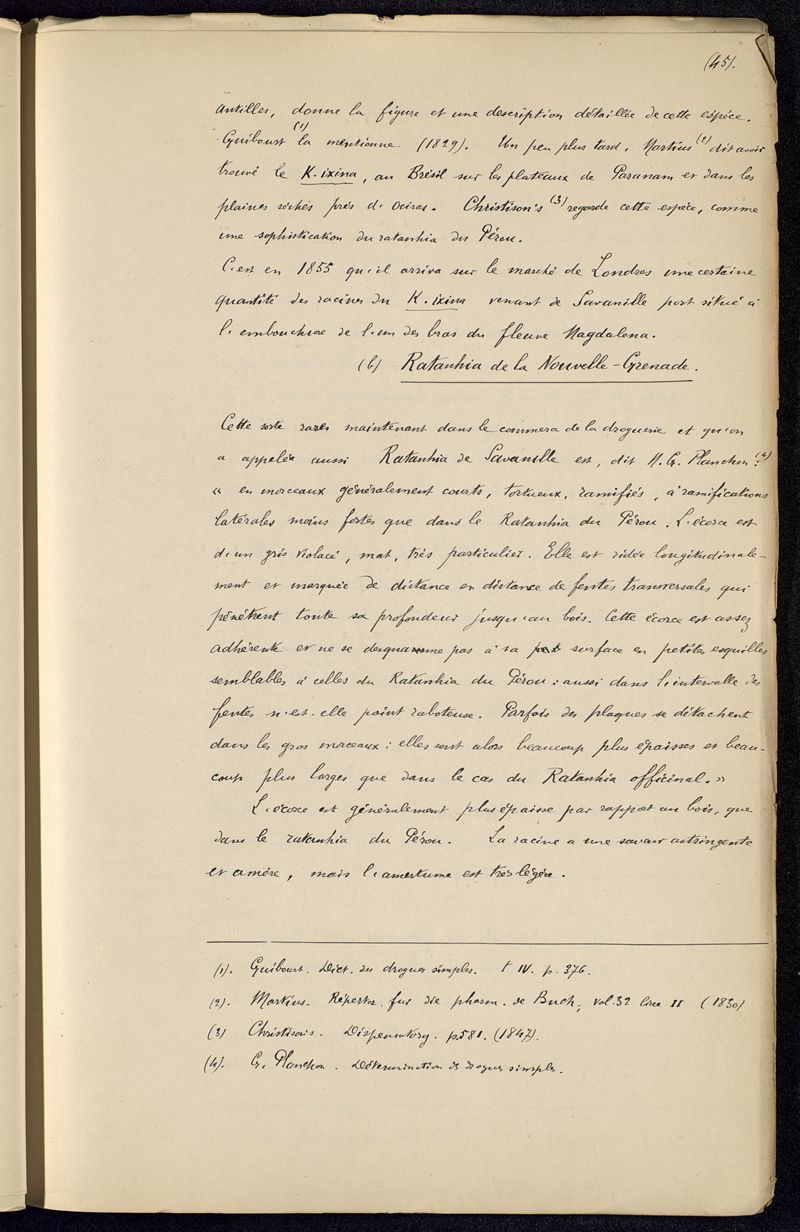 (45).
Antilles, donne la figure et une description détaillée de cette espèce.
Guibourt (1) la mentionne (1829). Un peu plus tard, Martius (2) dit avoir
trouvé le K. ixina, au Brésil sur les plateaux de Paranam et dans les
plaines sèches près d'Oeiras. Christison's (3) regarde cette espèce, comme
une sophistication du ratanhia du Pérou.
C'est en 1855 qu'il arriva sur le marché de Londres une certaine
quantité des racines du K. ixina venant de Savanille port situé à
l'embouchure de l'un des bras du fleuve Magdalena.
(b) Ratanhia de la Nouvelle-Grenade.
Cette sorte rare maintenant dans le commerce de la droguerie et qu'on
a appelée aussi Ratanhia de Savanille est, dit M. G. Planchon (4) :
« en morceaux généralement courts, tortueux, ramifiés, à ramifications
latérales moins fortes que dans le Ratanhia du Pérou. L'écorce est
d'un gris violacé, mat, très particulier. Elle est ridée longitudinale-
ment et marquée de distance en distance de fentes transversales qui
pénètrent toute sa profondeur jusqu'au bois. Cette écorce est assez
adhérente et ne se desquamme pas à sa surface en petites esquilles
semblables à celles du Ratanhia du Pérou : aussi dans l'intervalle des
fentes n'est-elle point raboteuse. Parfois des plaques se détachent
dans les gros morceaux : elles sont alors beaucoup plus épaisses et beau-
coup plus larges que dans le cas du Ratanhia officinal. »
L'écorce est généralement plus épaisse par rapport au bois, que
dans le ratanhia du Pérou. La racine a une saveur astringente
et amère, mais l'amertume est très légère.
(1). Guibourt. Dict. des drogues simples. t IV. p. 376.
(2). Martius. Répertor. fur die pharm. de Buch, vol. 32 II (1830)
(3) Christison's. Dispensatory. p. 581. (1847).
(4). G. Planchon. Détermination des drogues simples.